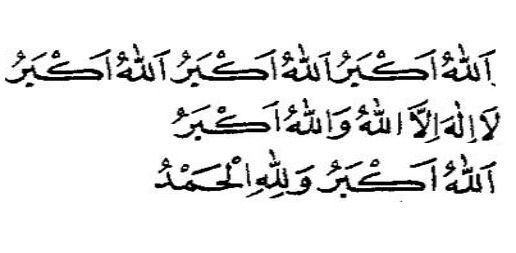 اَللّٰهُ اَكْبَرُ اَللّٰهُ اَكْبَرُ اَللّٰهُ اَكْبَرُ
لَا اِلٰهَ اِلَّا اللّٰهُ وَاللّٰهُ اَكْبَرُ
اَللّٰهُ اَكْبَرُ وَلِلّٰهِ الْحَمْدُ